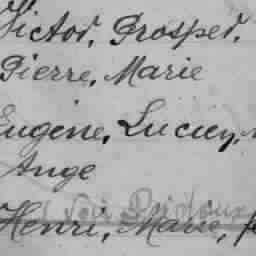 Victor, Prosper,
Pierre, Marie
Eugène, Lucien,
Ange
Henri, Marie,